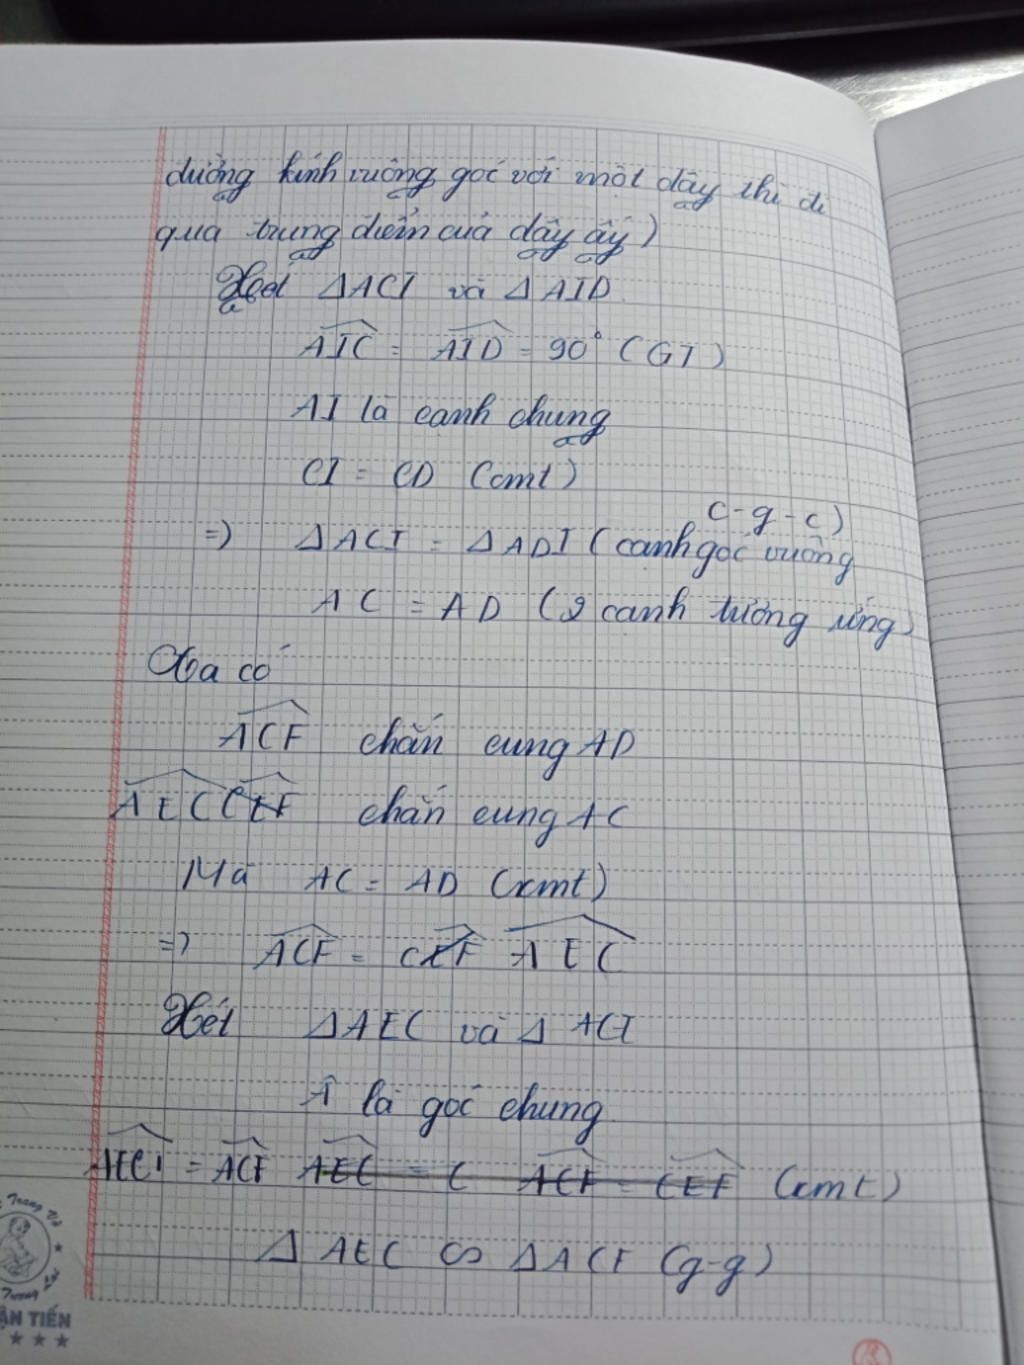 đường kính vuông góc với một dây thì đi
qua trung điểm của dây ấy)
Xét ΔACI và ΔAID
AIC = AID = 90° (GT)
AI là cạnh chung
CI = CD (cmt)
c-g-c)
=> ΔACI = ΔADI (cạnh góc vuông
AC = AD (2 cạnh tương ứng)
Ta có
ACF chắn cung AD
AEC CEF chắn cung AC
Mà AC = AD (cmt)
=> ACF = CEF AEC
Xét ΔAEC và Δ ACI
Â là góc chung
= ACF AEC = C ACF = CEF (cmt)
Δ AEC ∽ ΔACF (g-g)
Trang Vở
Tương Lai
ẬN TIẾN